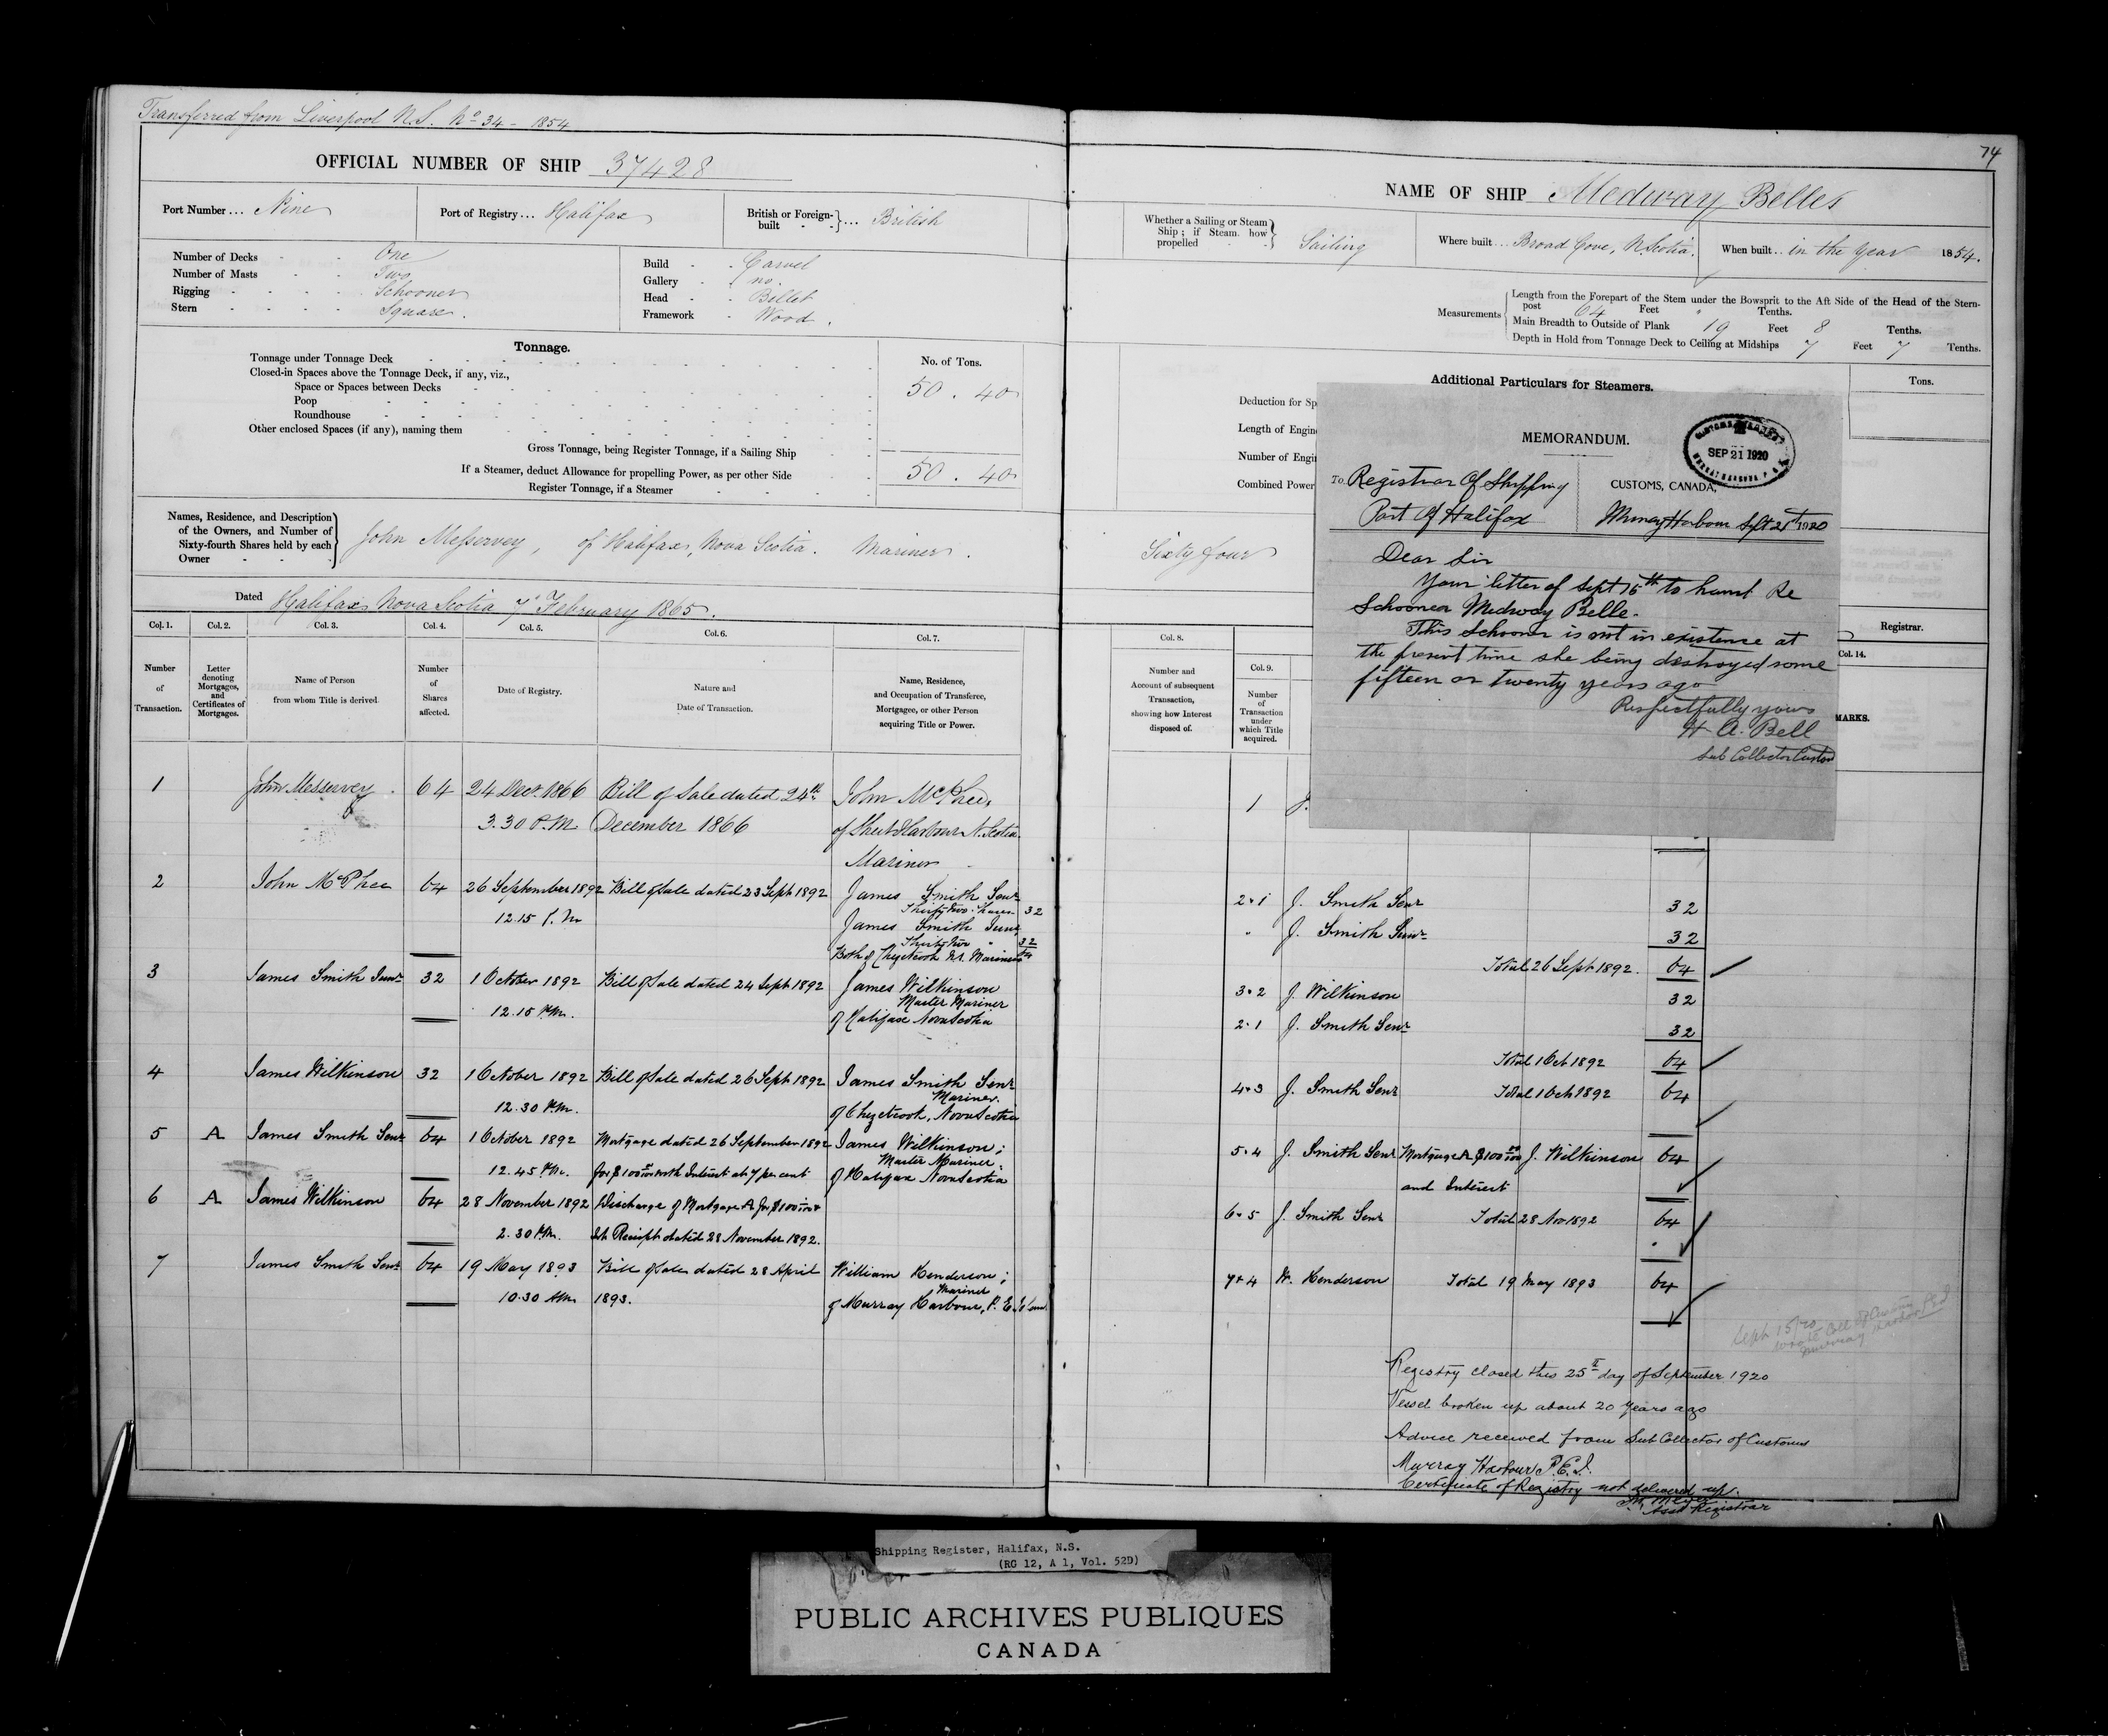 Transferred from Liverpool N.S. No 34 - 1854
74
OFFICIAL NUMBER OF SHIP 37428
NAME OF SHIP Medway Belle
Port Number... Nine
Port of Registry... Halifax
British or Foreign-built - - }... British
Whether a Sailing or Steam Ship; if Steam how propelled - - } Sailing
Where built... Broad Cove, N. Scotia.
When built... in the Year 1854.
Number of Decks - - One
Number of Masts - - Two
Rigging - - - - Schooner
Stern - - - - Square.
Build - - Carvel
Gallery - - no.
Head - - Billet
Framework - Wood.
Measurements { Length from the Forepart of the Stem under the Bowsprit to the Aft Side of the Head of the Stern-
post 64 Feet " Tenths.
Main Breadth to Outside of Plank 19 Feet 8 Tenths.
Depth in Hold from Tonnage Deck to Ceiling at Midships 7 Feet 7 Tenths.
Tonnage.
No. of Tons.
Tonnage under Tonnage Deck
Closed-in Spaces above the Tonnage Deck, if any, viz.,
Space or Spaces between Decks
50 . 40
Poop
Roundhouse
Other enclosed Spaces (if any), naming them
Gross Tonnage, being Register Tonnage, if a Sailing Ship
If a Steamer, deduct Allowance for propelling Power, as per other Side
50 . 40
Register Tonnage, if a Steamer
Additional Particulars for Steamers.
Tons.
Deduction for Sp
Length of Engin
Number of Engi
Combined Power
MEMORANDUM.
SEP 21 1920
To Registrar Of Shipping
Port Of Halifax
CUSTOMS, CANADA,
Murray Harbour Sept 21st 1920
Dear Sir
Your letter of Sept 15th to hand Re
Schooner Medway Belle.
This Schooner is not in existence at
the present time she being destroyed some
fifteen or twenty years ago
Respectfully yours
H A. Bell
Sub Collector Customs
Names, Residence, and Description
of the Owners, and Number of
Sixty-fourth Shares held by each
Owner - - -
John Messervey, of Halifax, Nova Scotia. Mariner.
Sixty four
Dated Halifax Nova Scotia 7th February 1865.
Registrar.
Col. 1.
Col. 2.
Col. 3.
Col. 4.
Col. 5.
Col. 6.
Col. 7.
Col. 8.
Col. 9.
Col. 14.
Number of Transaction.
Letter denoting Mortgages, and Certificates of Mortgages.
Name of Person from whom Title is derived.
Number of Shares affected.
Date of Registry.
Nature and Date of Transaction.
Name, Residence, and Occupation of Transferee, Mortgagee, or other Person acquiring Title or Power.
Number and Account of subsequent Transaction, showing how Interest disposed of.
Number of Transaction under which Title acquired.
MARKS.
1 John Messervey. 64 24 Decr. 1866 Bill of Sale dated 24th John McPhee,
3.30 P.M December 1866 of Sheet Harbour N. Scotia
Mariner
1 J.
2 John McPhee 64 26 September 1892 Bill of Sale dated 23 Sept 1892 James Smith Senr
Thirty two Shares 32
12.15 P.M James Smith Junr
Thirty two " 32
Both of Chezetcook N.S. Mariners 64
2.1 J. Smith Senr 32
" J. Smith Junr 32
Total 26 Sept 1892. 64
3 James Smith Junr 32 1 October 1892 Bill of Sale dated 24 Sept 1892 James Wilkinson
Master Mariner
12.15 P.M. of Halifax Nova Scotia
3.2 J. Wilkinson 32
2.1 J. Smith Senr 32
Total 1 Oct 1892 64
4 James Wilkinson 32 1 October 1892 Bill of Sale dated 26 Sept 1892 James Smith Senr
Mariner.
12.30 P.M. of Chezetcook, Nova Scotia
4.3 J. Smith Senr Total 1 Oct 1892 64
5 A James Smith Senr 64 1 October 1892 Mortgage dated 26 September 1892 James Wilkinson;
Master Mariner.
12.45 P.M. for $100 00/100 with Interest at 7 per cent of Halifax Nova Scotia
5.4 J. Smith Senr Mortgage A $100 00/100 J. Wilkinson 64
and Interest
6 A James Wilkinson 64 28 November 1892 Discharge of Mortgage A for $100
2.30 P.M. Receipt dated 28 November 1892.
6.5 J. Smith Senr Total 28 Nov 1892 64
7 James Smith Senr 64 19 May 1893 Bill of Sale dated 28 April William Henderson;
Mariner
10.30 AM 1893. of Murray Harbour, P. E. Island
7.4 W. Henderson Total 19 May 1893 64
Sept 15/20
wrote Coll of Customs
Murray Harbor PEI
Registry closed this 25th day of September 1920
Vessel broken up about 20 years ago
Advice received from Sub Collector of Customs
Murray Harbour P.E.I.
Certificate of Registry not delivered up.
Asst Registrar
Shipping Register, Halifax, N.S.
(RG 12, A 1, Vol. 52D)
PUBLIC ARCHIVES PUBLIQUES
CANADA